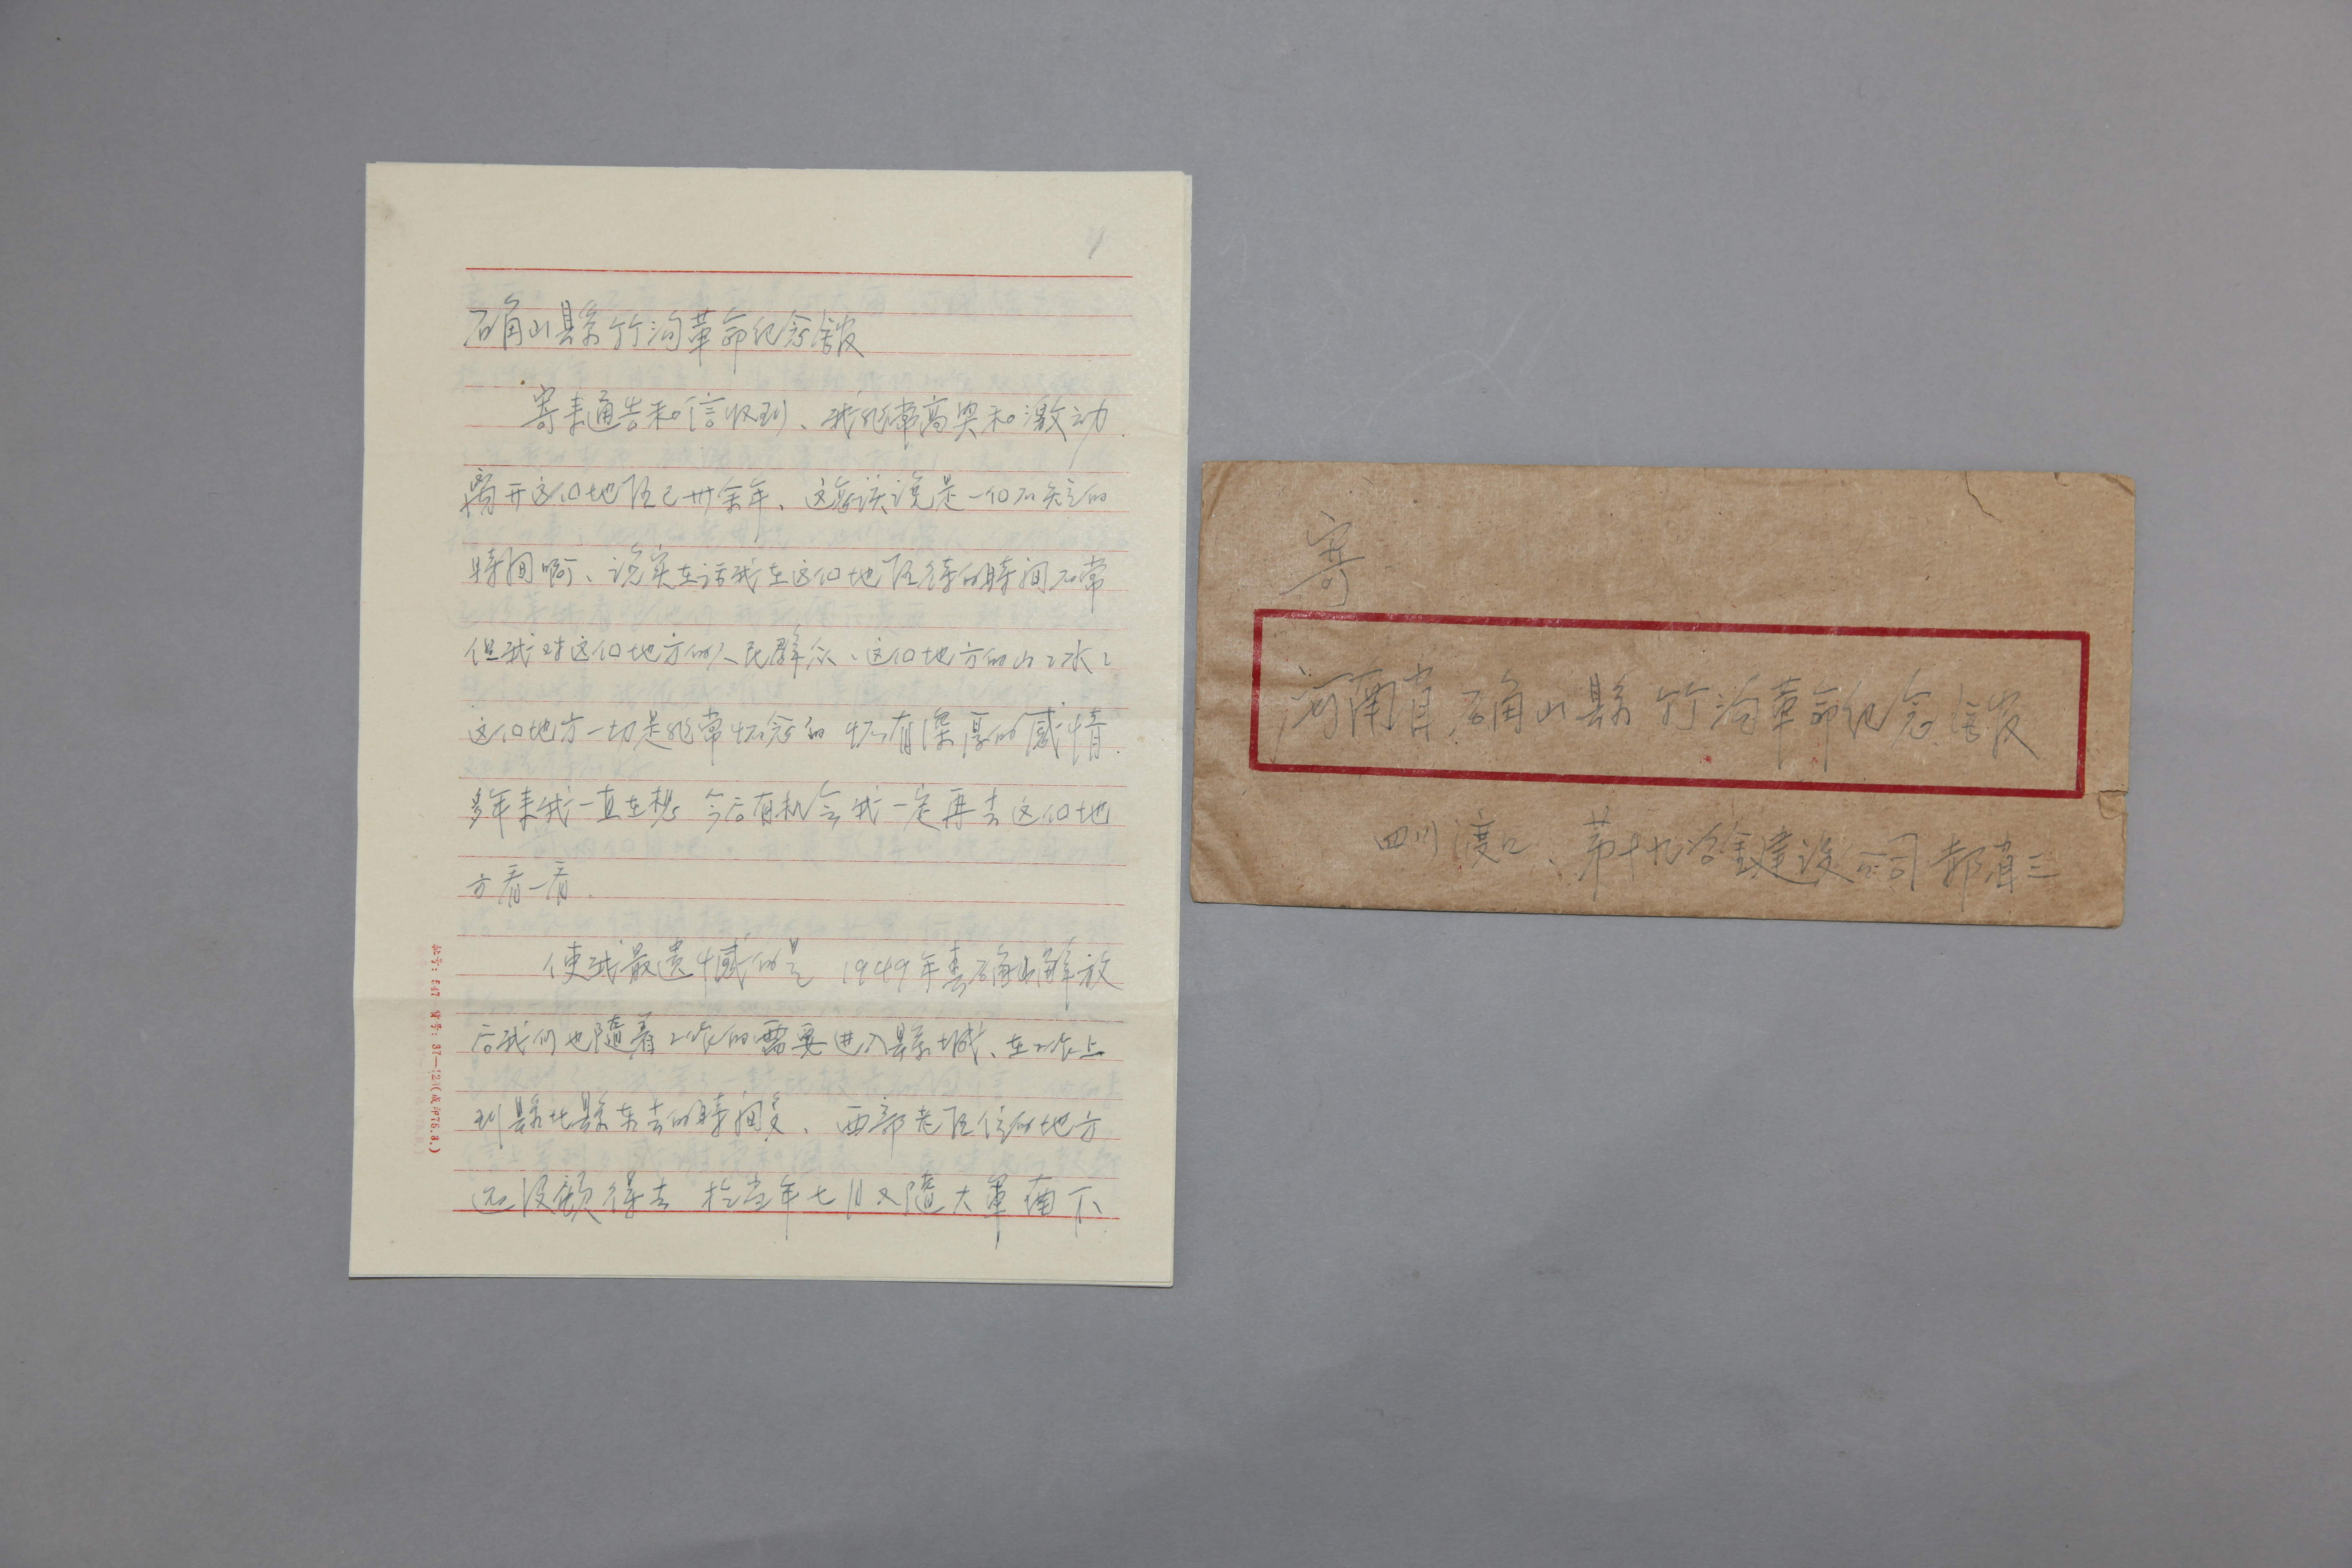 1
确山縣竹沟革命纪念馆
寄来通告和信收到、我非常高兴和激动.
离开这个地区已卅余年、这应该说是一个不短的
時间啊、说实在话我在这个地区待的時间不常
但我对这个地方的人民群众、这个地方的山山水水
这个地方一切是非常怀念的 怀有深厚的感情.
多年来我一直在想 今后有机会我一定再去这个地
方看一看.
使我最遗憾的是 1949年春确山解放
后我们也隨着工作的需要进入縣城、在工作上
到縣北縣东去的時间多、西部老区住的地方
还没顾得去 于当年七月又隨大軍南下
批号:547 货号:37—12(成印76.8.)
寄
河南省确山縣竹沟革命纪念馆
四川渡口、第十九冶金建设公司 郝省三